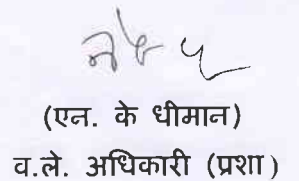 (एन. के धीमान)
व.ले. अधिकारी (प्रशा)